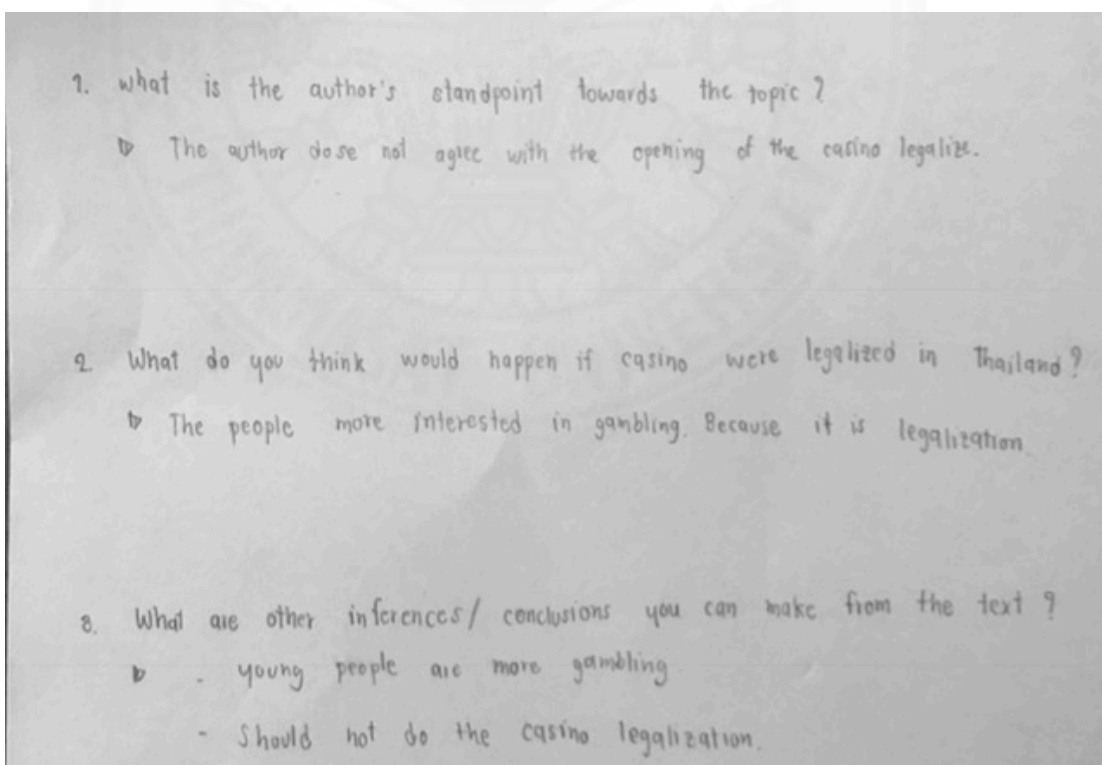 1. what is the author's standpoint towards the topic ?
The author dose not agree with the opening of the casino legalize.
2. What do you think would happen if casino were legalized in Thailand ?
The people more interested in gambling. Because it is legalization
3. What are other inferences / conclusions you can make from the text ?
- young people are more gambling
- Should not do the casino legalization.